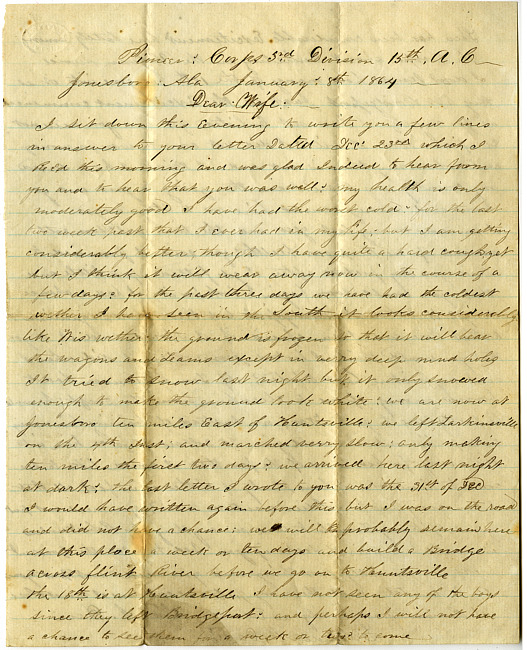 Pioneer: Corps 3rd Division 15th. A. C
Jonesboro: Ala January: 8th 1864
Dear. Wife.
I sit down this Evening to write you a few lines
in answer to your letter Dated Dec 23rd which I
Recd this morning and was glad Indeed to hear from
you and to hear that you was well: my health is only
moderately good I have had the worst cold: for the last
two week past that I ever had in my life; but I am getting
considerably better; though I have quite a hard cough yet
but I think it will wear away now in the course of a
few days: for the past three days we have had the coldest
wether I have seen in the South it looks considerably
like Wis wether: the ground is frozen so that it will bear
the wagons and teams except in verry deep mud holes
It tried to snow last night but it only snowed
enough to make the ground look white: we are now at
Jonesboro ten miles East of Huntsville: we left Larkinsville
on the 4th Inst; and marched verry slow: only making
ten miles the first two days: we arrived here last night
at dark: the last letter I wrote to you was the 31st of Dec
I would have written again before this but I was on the road
and did not have a chance: we will probably remain here
at this place a week or ten days and build a Bridge
across flint River before we go on to Huntsville
the 18th is at Huntsville I have not seen any of the boys
since they left Bridgeport: and perhaps I will not have
a chance to see them for a week or two to come